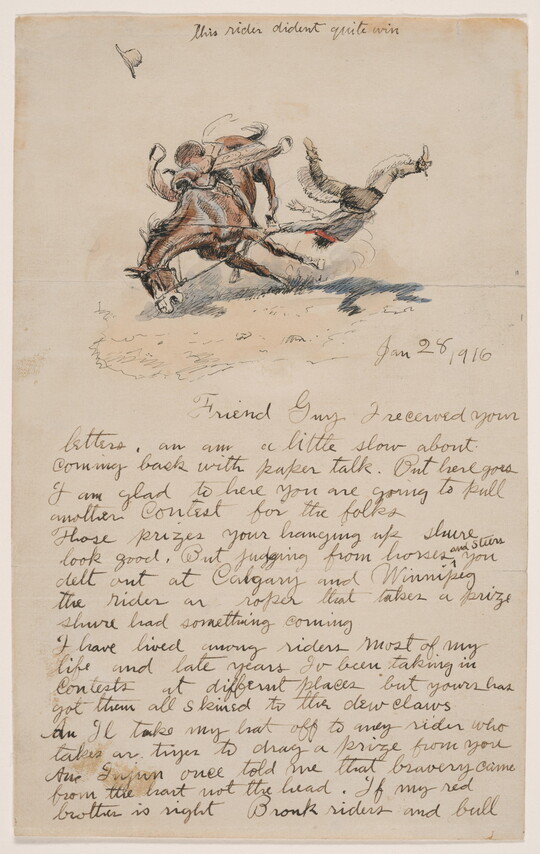 This rider dident quite win
Jan 28, 1916
Friend Guy I received your
letters, an am a little slow about
coming back with paper talk. But here goes
I am glad to here you are going to pull
another Contest for the folks
Those prizes your hanging up shure
look good. But judging from horses and Steers you
delt out at Calgary and Winnipeg
the rider or roper that takes a prize
shure had something coming
I have lived among riders most of my
life and late years Iv been taking in
Contests at different places but yours has
got them all skined to the dew claws
An Il take my hat off to aney rider who
takes or tryes to drag a prize from you
An Injun once told me that bravery came
from the hart not the head. If my red
brother is right Bronk riders and bull